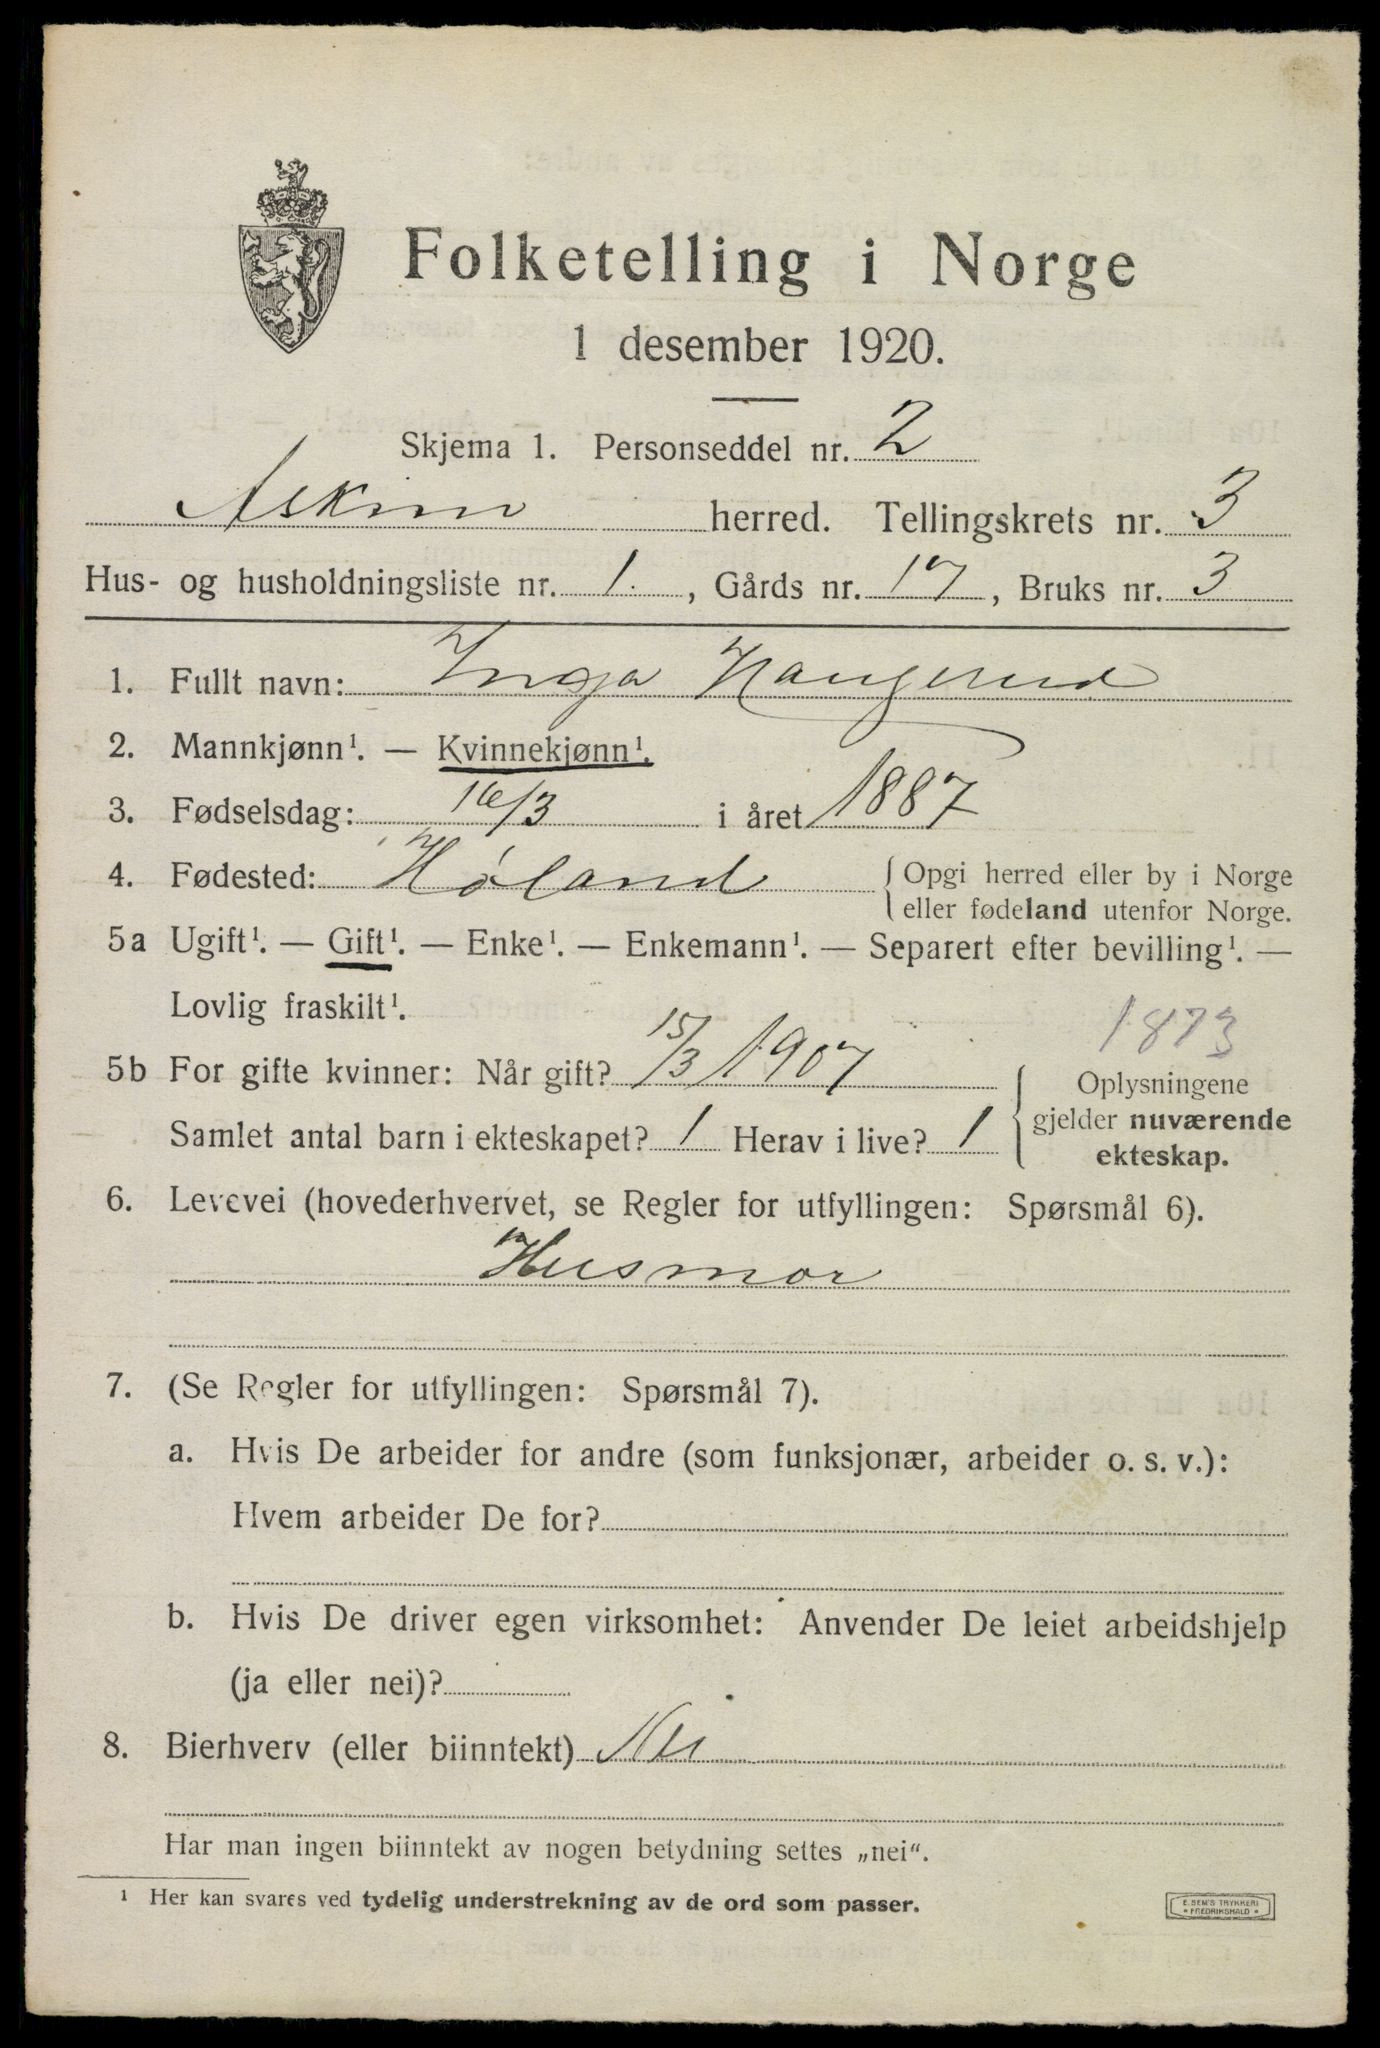 Folketelling i Norge
1 desember 1920.
Skjema 1. Personseddel nr. 2
Askim herred. Tellingskrets nr. 3
Hus- og husholdningsliste nr. 1., Gårds nr. 17, Bruks nr. 3
1. Fullt navn: Inga Haugerud
2. Mannkjønn¹. — Kvinnekjønn¹.
3. Fødselsdag: 16/3 i året 1887
4. Fødested: Høland { Opgi herred eller by i Norge
eller fødeland utenfor Norge.
5a Ugift¹. — Gift¹. — Enke¹. — Enkemann¹. — Separert efter bevilling¹. —
Lovlig fraskilt¹.
1873
5b For gifte kvinner: Når gift? 15/3 1907 { Oplysningene
gjelder nuværende
Samlet antal barn i ekteskapet? 1 Herav i live? 1
ekteskap.
6. Levevei (hovederhvervet, se Regler for utfyllingen: Spørsmål 6).
Husmor
7. (Se Regler for utfyllingen: Spørsmål 7).
a. Hvis De arbeider for andre (som funksjonær, arbeider o. s. v.):
Hvem arbeider De for?
b. Hvis De driver egen virksomhet: Anvender De leiet arbeidshjelp
(ja eller nei)?
8. Bierhverv (eller biinntekt) Nei
Har man ingen biinntekt av nogen betydning settes „nei“.
¹ Her kan svares ved tydelig understrekning av de ord som passer.
E. SEM'S TRYKKERI
* FREDRIKSHALD *